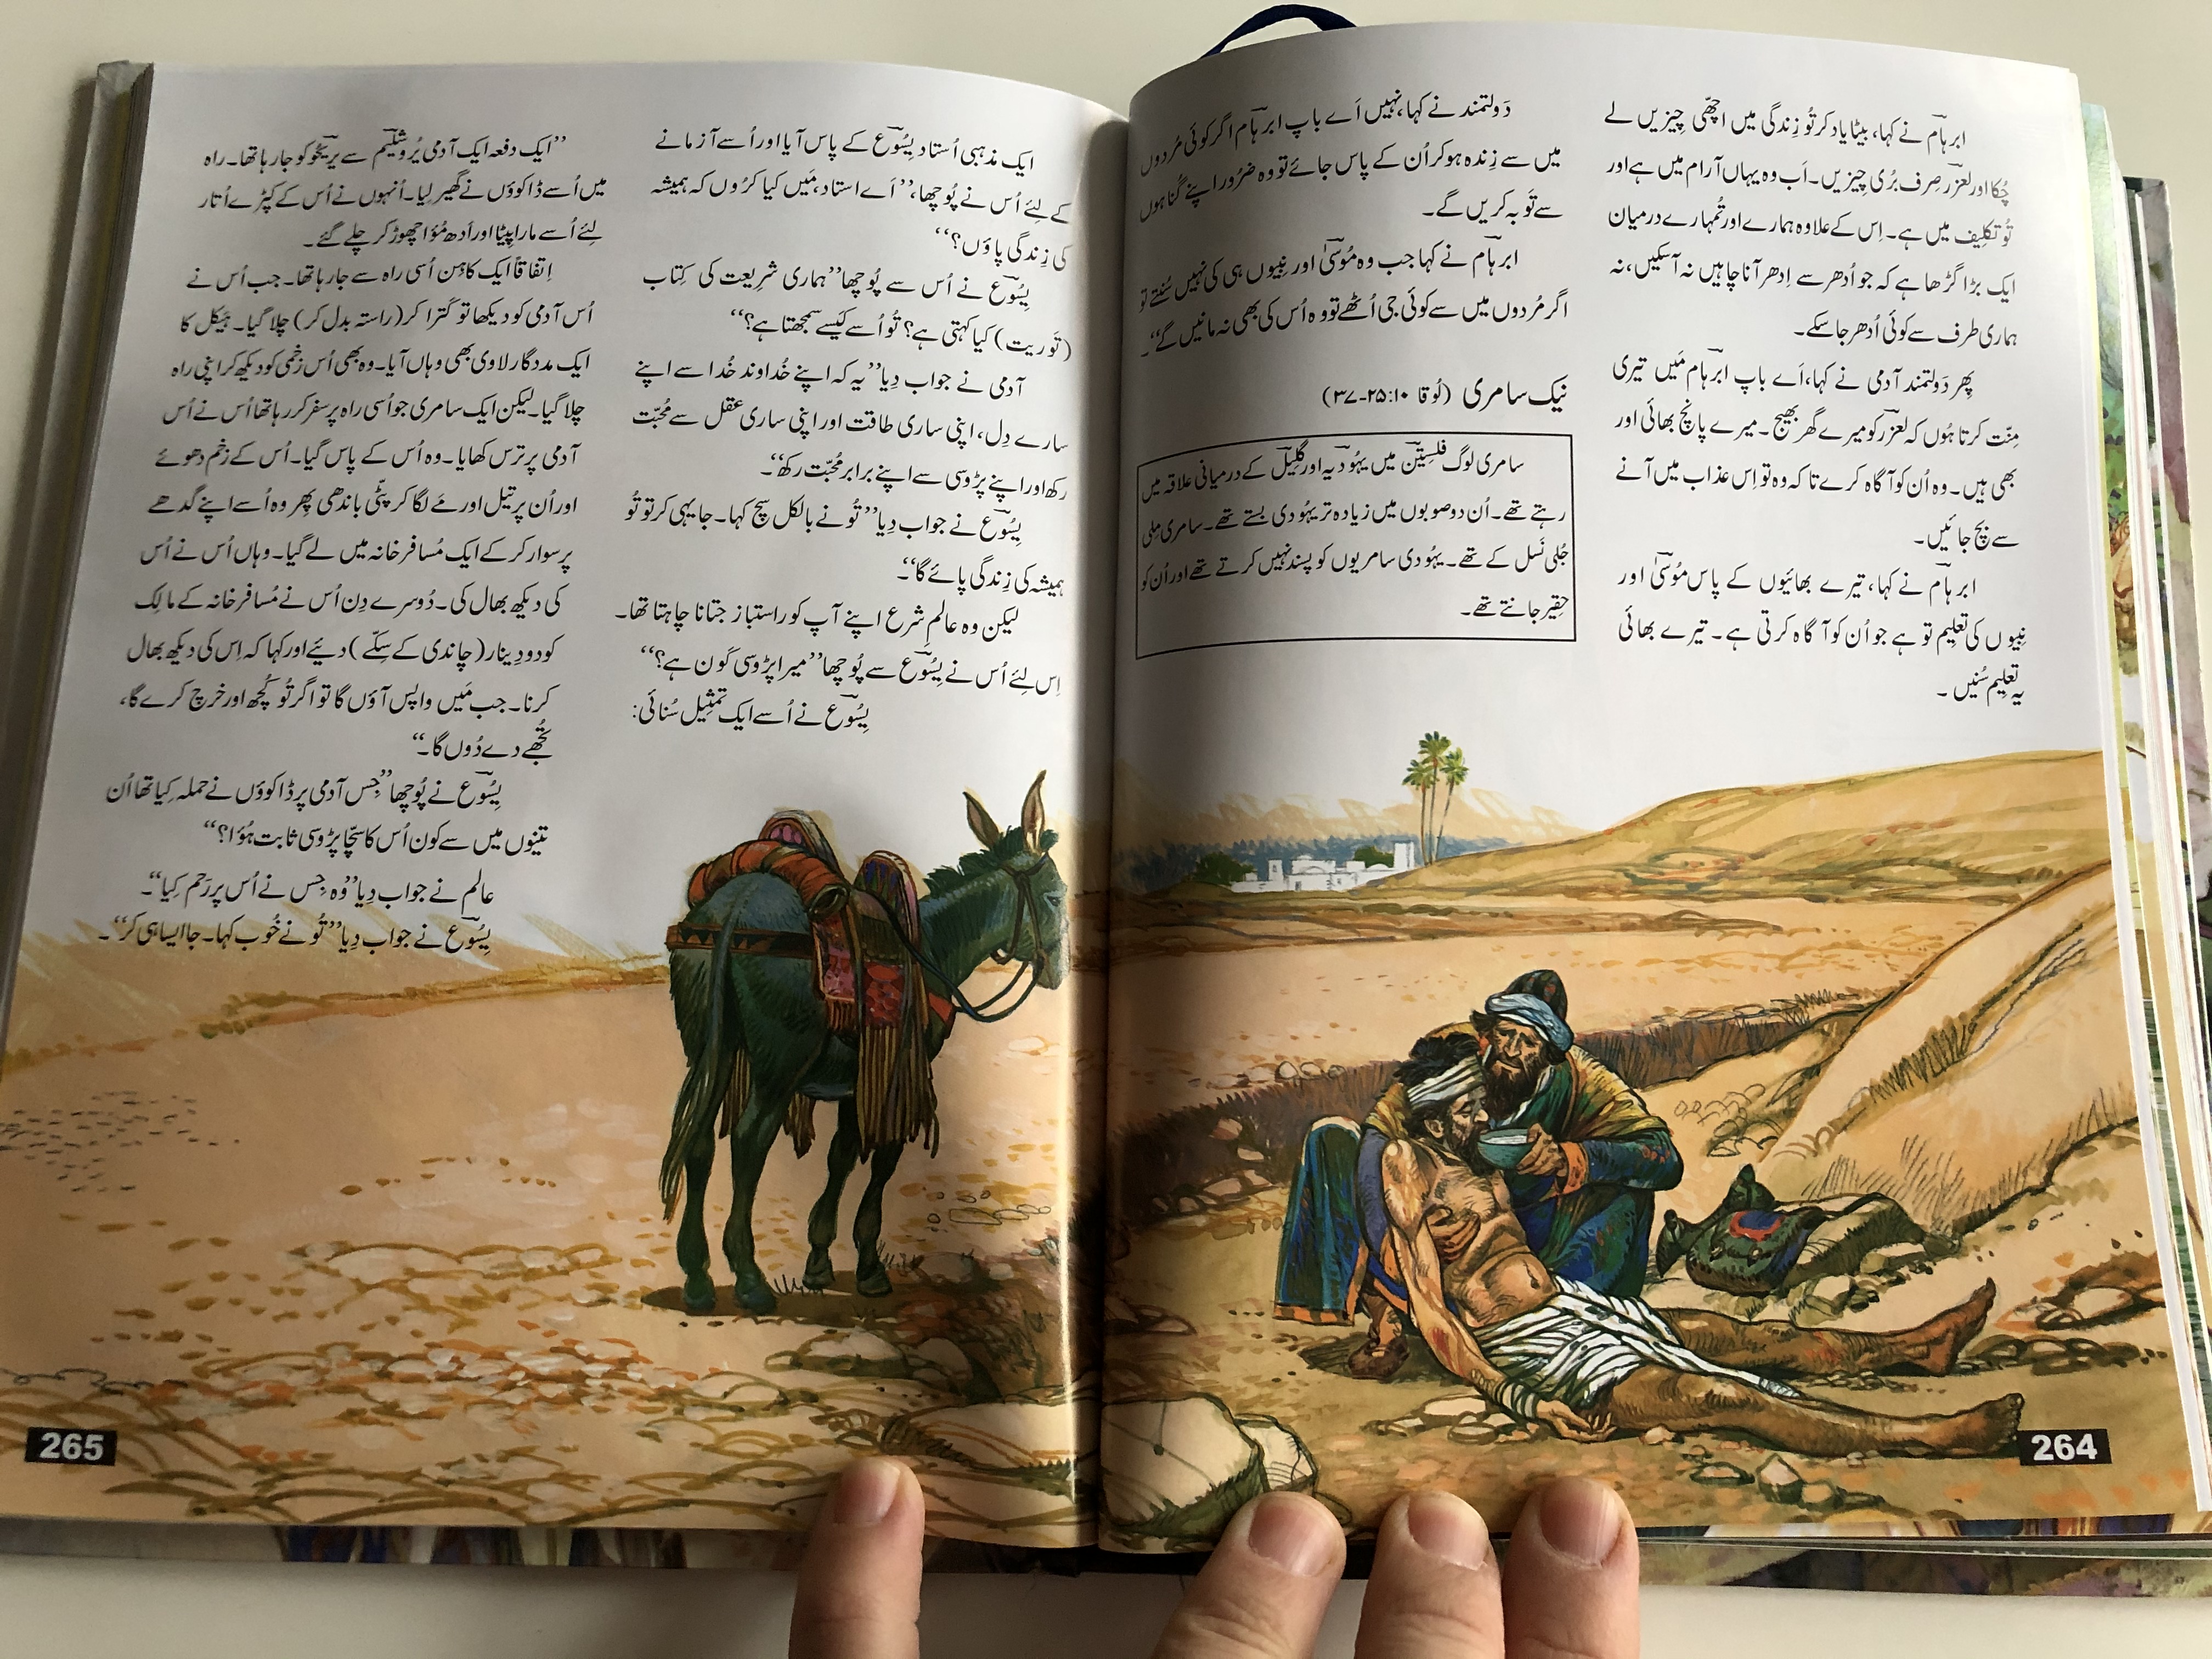 ابرہام نے کہا، بیٹا یاد کر تُو زِندگی میں اچھّی چِیزیں لے
چُکا اور لعزر صِرف بُری چیزیں۔ اَب وہ یہاں آرام میں ہے اور
تُو تکلِیف میں ہے۔ اِس کے علاوہ ہمارے اور تُمہارے درمیان
ایک بڑا گڑھا ہے کہ جو اُدھر سے اِدھر آنا چاہیں نہ آسکیں، نہ
ہماری طرف سے کوئی اُدھر جاسکے۔
پِھر دَولتمند آدمی نے کہا، اَے باپ ابرہام مَیں تیری
مِنّت کرتا ہُوں کہ لعزر کو میرے گھر بھیج۔ میرے پانچ بھائی اور
بھی ہیں۔ وہ اُن کو آگاہ کرے تا کہ وہ تو اِس عذاب میں آنے
سے بچ جائیں۔
ابرہام نے کہا، تیرے بھائیوں کے پاس مُوسیٰ اور
نبِیوں کی تعلِیم تو ہے جو اُن کو آگاہ کرتی ہے۔ تیرے بھائی
یہ تعلِیم سُنیں۔
دَولتمند نے کہا، نہیں اَے باپ ابرہام اگر کوئی مُردوں
میں سے زِندہ ہو کر اُن کے پاس جائے تو وہ ضرُور اپنے گُناہوں
سے تَوبہ کریں گے۔
ابرہام نے کہا جب وہ مُوسیٰ اور نبِیوں ہی کی نہیں سُنتے تو
اگر مُردوں میں سے کوئی جی اُٹھے تو وہ اُس کی بھی نہ مانیں گے‘‘۔
نیک سامری (لُوقا ۱۰:۲۵-۳۷)
سامری لوگ فلِستِین میں یہُودیہ اور گلِیل کے درمیانی علاقہ میں
رہتے تھے۔ اُن دو صوبوں میں زیادہ تر یہُودی بستے تھے۔ سامری مِلی
جُلی نَسل کے تھے۔ یہُودی سامریوں کو پسند نہیں کرتے تھے اور اُن کو
حقِیر جانتے تھے۔
264
ایک مذہبی اُستاد یسُوع کے پاس آیا اور اُسے آزمانے
کے لِئے اُس نے پُوچھا، ’’اَے استاد، مَیں کیا کرُوں کہ ہمیشہ
کی زِندگی پاؤں؟‘‘
یسُوع نے اُس سے پُوچھا ’’ہماری شرِیعت کی کِتاب
(تَوریت) کیا کہتی ہے؟ تُو اُسے کَیسے سمجھتا ہے؟‘‘
آدمی نے جواب دِیا ’’یہ کہ اپنے خُداوند خُدا سے اپنے
سارے دِل، اپنی ساری طاقت اور اپنی ساری عقل سے مُحبّت
رکھ اور اپنے پڑوسی سے اپنے برابر مُحبّت رکھ‘‘۔
یسُوع نے جواب دِیا ’’تُو نے بالکل سچ کہا۔ جا یہی کر تو تُو
ہمیشہ کی زِندگی پائے گا‘‘۔
لیکن وہ عالِم شرع اپنے آپ کو راستباز جتانا چاہتا تھا۔
اِس لِئے اُس نے یسُوع سے پُوچھا ’’میرا پڑوسی کَون ہے؟‘‘
یسُوع نے اُسے ایک تمثِیل سُنائی:
’’ایک دفعہ ایک آدمی یُروشلِیم سے یرِیحُو کو جا رہا تھا۔ راہ
میں اُسے ڈاکوؤں نے گھیر لِیا۔ اُنہوں نے اُس کے کپڑے اُتار
لِئے اُسے مارا پِیٹا اور اَدھ مُوٗا چھوڑ کر چلے گئے۔
اِتفاقاً ایک کاہِن اُسی راہ سے جا رہا تھا۔ جب اُس نے
اُس آدمی کو دیکھا تو کَترا کر (راستہ بدل کر) چلا گیا۔ ہَیکل کا
ایک مددگار لاوی بھی وہاں آیا۔ وہ بھی اُس زخمی کو دیکھ کر اپنی راہ
چلا گیا۔ لیکن ایک سامری جو اُسی راہ پر سفر کر رہا تھا اُس نے اُس
آدمی پر ترس کھایا۔ وہ اُس کے پاس گیا۔ اُس کے زخم دھوئے
اور اُن پر تیل اور مَے لگا کر پٹّی باندھی پِھر وہ اُسے اپنے گدھے
پر سوار کر کے ایک مُسافر خانہ میں لے گیا۔ وہاں اُس نے اُس
کی دیکھ بھال کی۔ دُوسرے دِن اُس نے مُسافر خانہ کے مالِک
کو دو دِینار (چاندی کے سِکّے) دئیے اور کہا کہ اِس کی دیکھ بھال
کرنا۔ جب مَیں واپس آؤں گا تو اگر تُو کُچھ اور خرچ کرے گا،
تُجھے دے دُوں گا۔‘‘
یسُوع نے پُوچھا ’’جِس آدمی پر ڈاکوؤں نے حملہ کِیا تھا اُن
تینوں میں سے کون اُس کا سچّا پڑوسی ثابت ہُؤا؟‘‘
عالم نے جواب دِیا ’’وہ جِس نے اُس پر رَحم کِیا‘‘۔
یسُوع نے جواب دِیا ’’تُو نے خُوب کہا۔ جا ایسا ہی کر‘‘۔
265